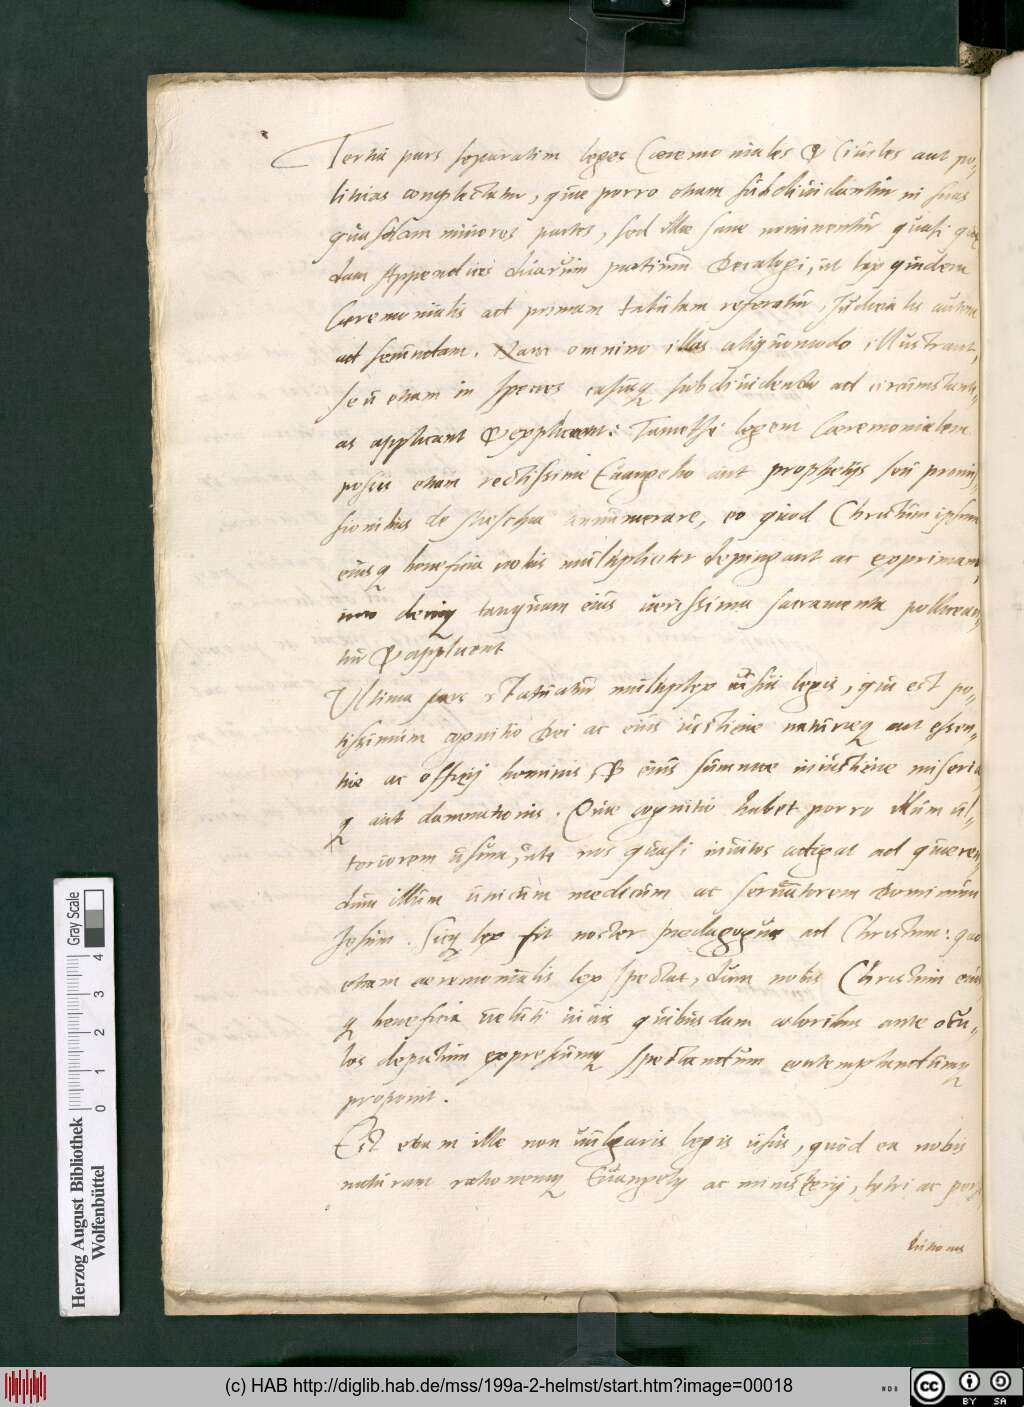 Tertia pars separatim leges Caeremoniales & Ciuiles aut po„
liticas complectatur, quae porro etiam subdiuidantur in suas
quasdam minores partes, sed illae sane nominentur quasi quae
dam Appendices duarum partium Decalogi, ut lex quidem
Caeremonialis ad primam tabulam referatur, Iudicialis autem
ad secundam. Nam omnino illas aliquomodo illustrant,
seu etiam in species casusq subdiuidentes ad circumstanti„
as applicant & explicant: Tametsi legem Caeremonialem
possis etiam rectissime Euangelio aut prophetijs seu promis
sionibus de Meschia annumerare, eo quod Christum ipsum
eiusq beneficia nobis multipliciter depingant ac exprimant,
imo deniq tanquam eius uerissima sacramenta pollicean„
tur & applicent
Vltima pars statuatur multiplex usus legis, qui est po„
tissimum cognitio Dei ac eius iusticiae naturaeq aut essen„
tiae ac officij hominis, & eius summae iniusticiae miseriae
q aut damnationis. Quae cognitio habet porro illum ul„
teriorem usum, ut nos quasi inuitos adigat ad queren„
dum illum unicum medicum ac seruatorem Dominum
Iesum. Sicq lex fit noster paedagogus ad Christum: quo
etiam caeremonialis lex spectat, dum nobis Christum eius
q beneficia ueluti uiuis quibusdam coloribus ante ocu„
los depictum expressumq spectandum contemplandumq
proponit.
Est etiam ille non uulgaris legis usus, quod ea nobis
naturam rationemq Euangelij ac ministerij, lytri ac per